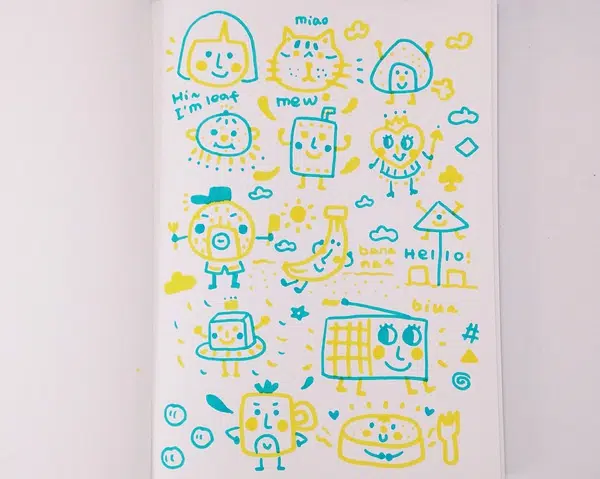 miao
Hi~
I'm leaf
mew
bana
na~
HELLO!
biua
#